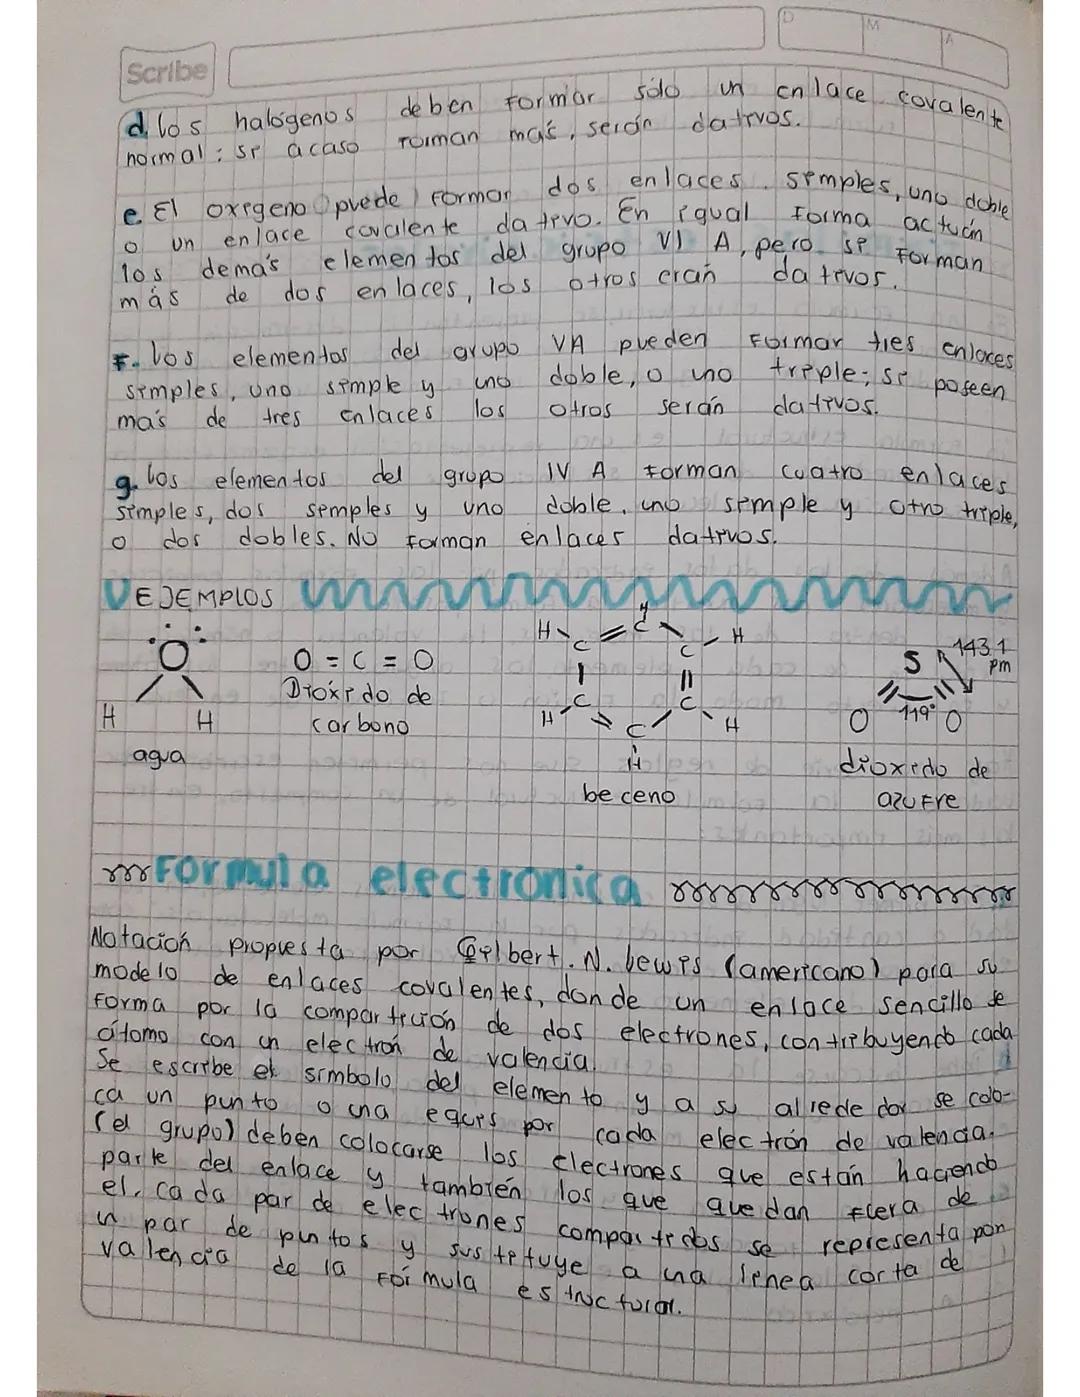 Scribe
D M A
d. los halogenos deben formar sólo un enlace covalente
normal; si acaso forman más, serán dativos.
e. El oxigeno puede formar dos enlaces simples, uno doble
o un enlace covalente dativo. En igual forma actúan
los demás elementos del grupo VI A, pero si forman
más de dos enlaces, los otros eran dativos.
F. los elementos del grupo VA pueden formar tres enlaces
simples, uno simple y uno doble, o uno triple; si poseen
más de tres enlaces los otros serán dativos.
g. los elementos del grupo IV A forman cuatro enlaces
simples, dos simples y uno doble, uno simple y otro triple,
o dos dobles. No forman enlaces dativos.
EJEMPLOS
O
H H
agua
O = C = O
Dioxido de
carbono
H C C H
H C C H
C C
H H
be ceno
S 143.1
pm
O 119° O
dioxido de
azufre
Formula electronica
Notación propuesta por Gilbert. N. Lewis (americano) para su
modelo de enlaces covalentes, donde un enlace sencillo se
forma por la compartición de dos electrones, contribuyendo cada
átomo con un electrón de valencia.
Se escribe el simbolo del elemento y a su alrededor se colo-
ca un punto o una equis por cada electrón de valencia.
(el grupo) deben colocarse los electrones que están haciendo
parte del enlace y también los que quedan fuera de
el. cada par de electrones compartidos se representa por
un par de puntos y sustituye a una linea corta de
valencia de la formula estructural.